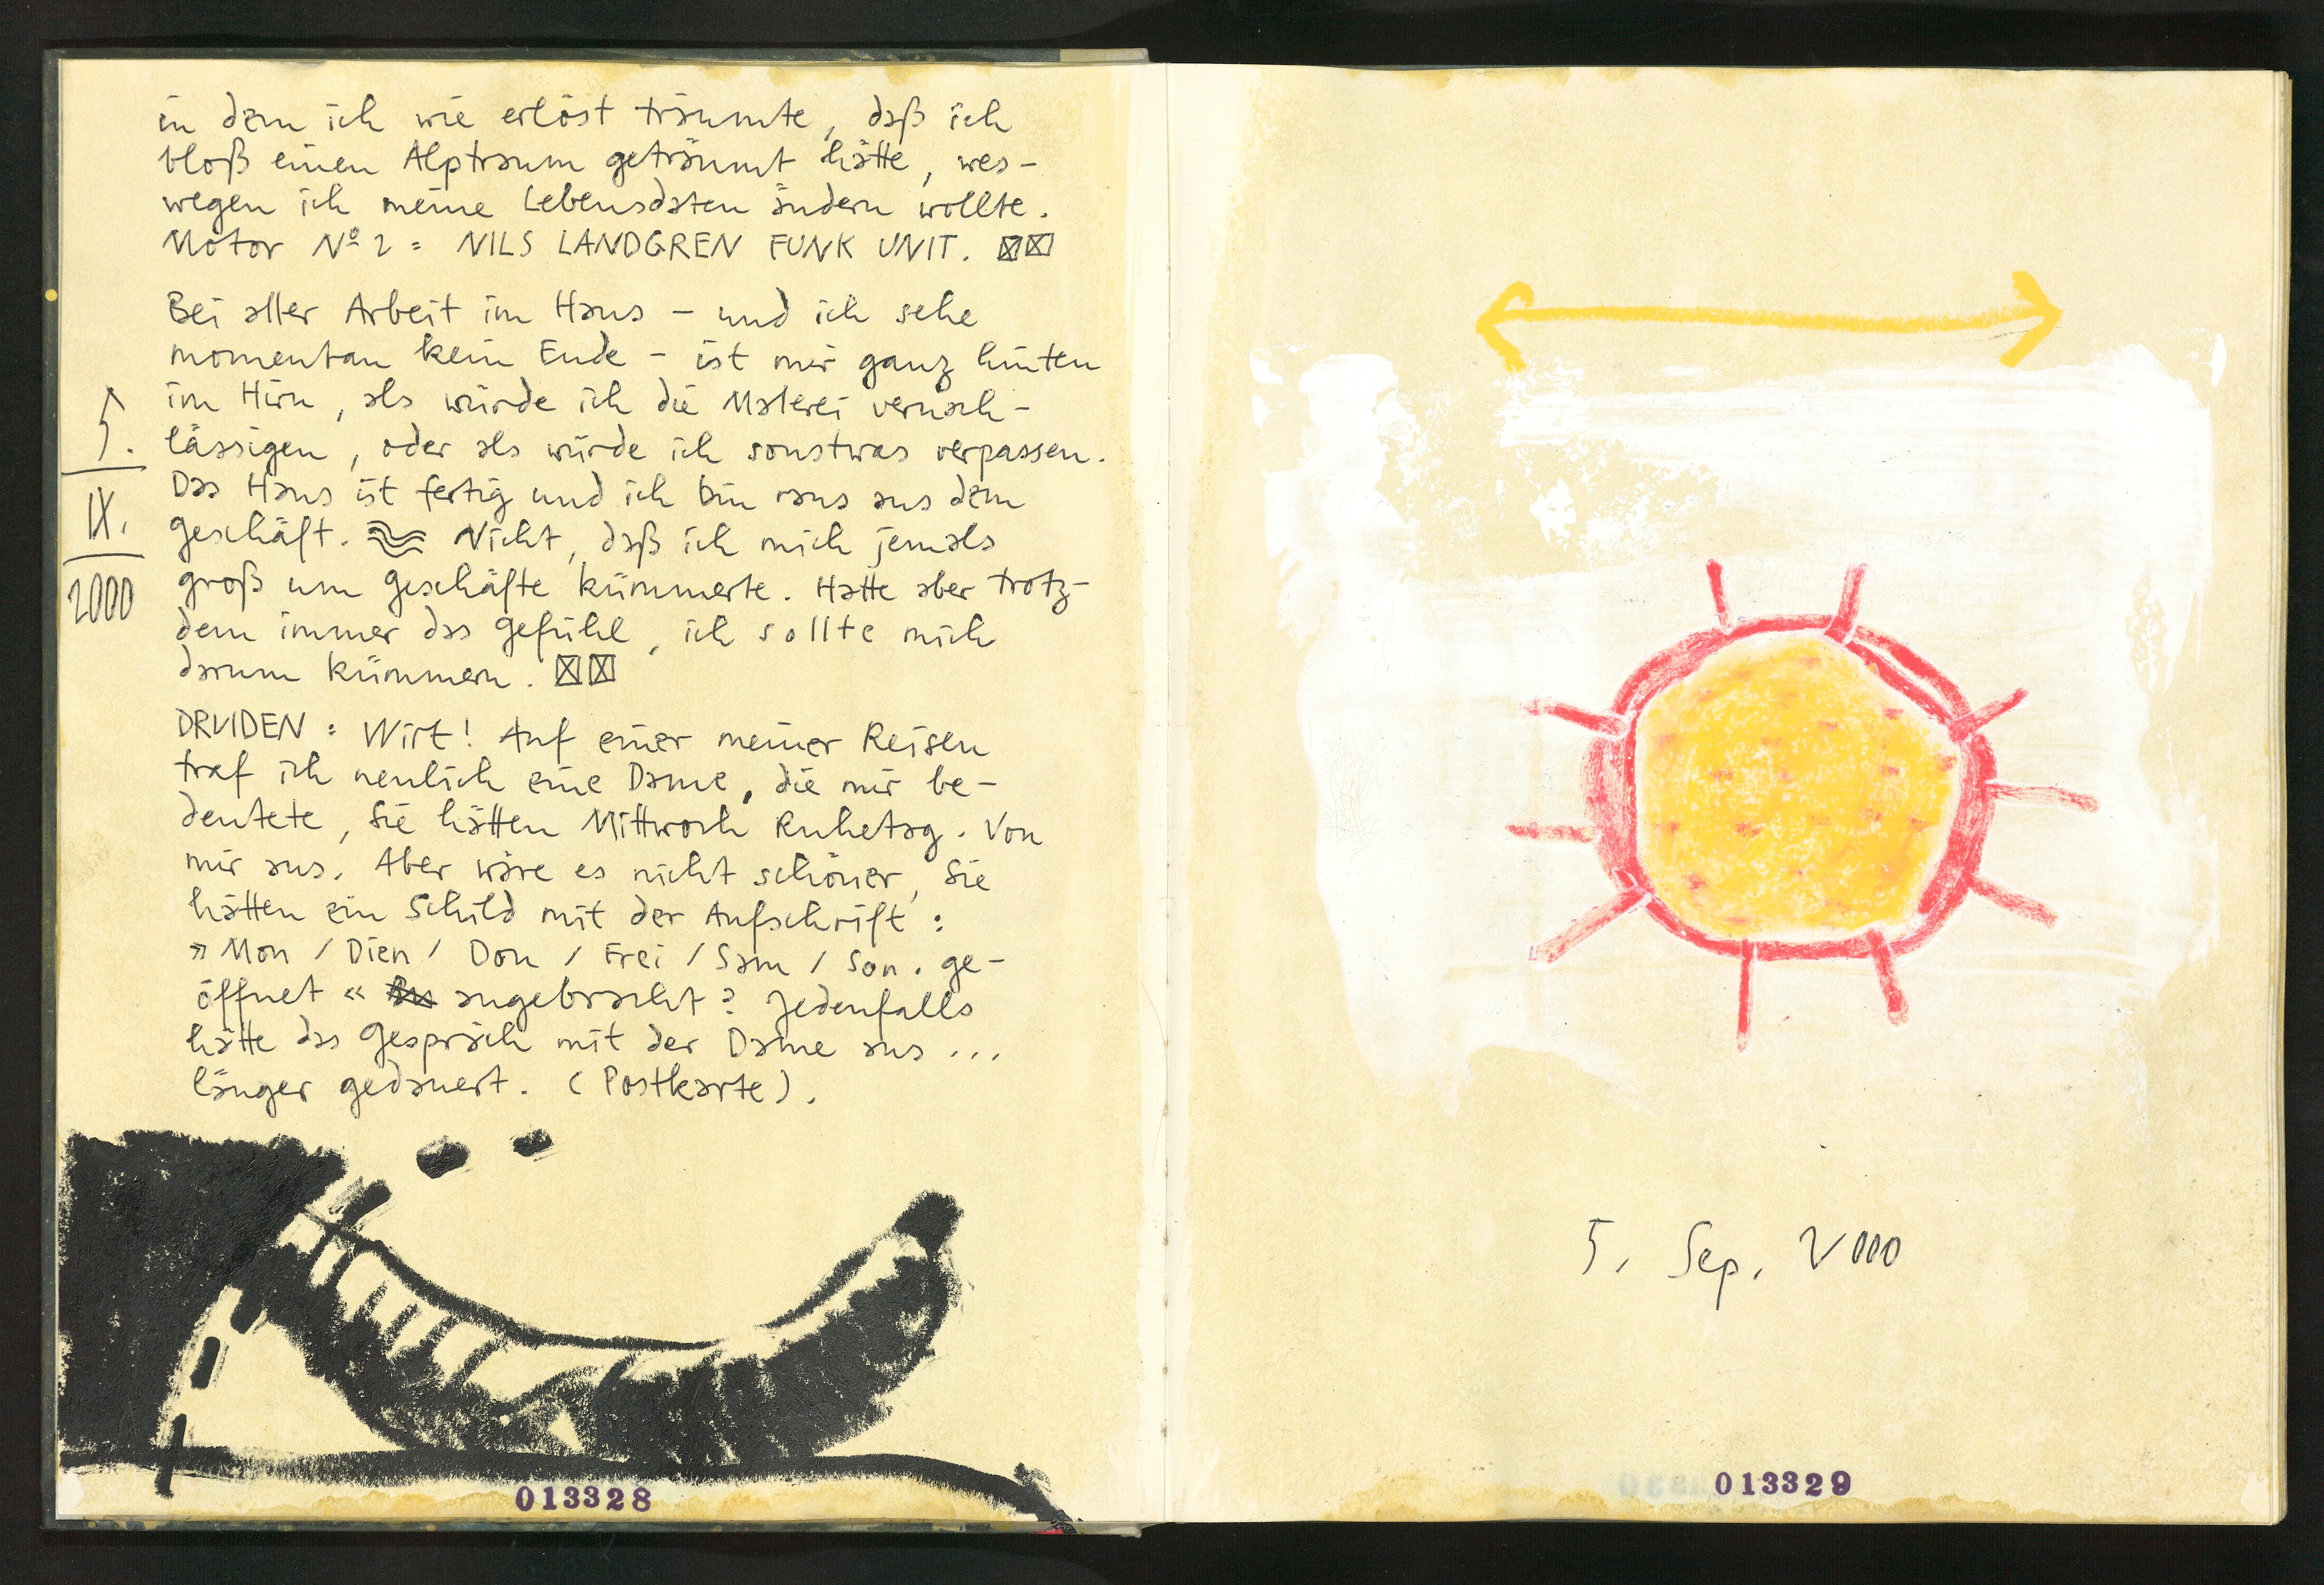 in dem ich wie erlöst träumte, daß ich
bloß einen Alptraum geträumt hätte, wes-
wegen ich meine Lebensdaten ändern wollte.
Motor Nº 2 = NILS LANDGREN FUNK UNIT.
Bei aller Arbeit im Haus – und ich sehe
momentan kein Ende – ist mir ganz hinten
im Hirn, als würde ich die Malerei vernach-
lässigen, oder als würde ich sonstwas verpassen.
Das Haus ist fertig und ich bin raus aus dem
Geschäft. Nicht, daß ich mich jemals
groß um Geschäfte kümmerte. Hatte aber trotz-
dem immer das Gefühl, ich sollte mich
darum kümmern.
5.
IX.
2000
DRUIDEN: Wirt! Auf einer meiner Reisen
traf ich neulich eine Dame, die mir be-
deutete, Sie hätten Mittwoch Ruhetag. Von
mir aus. Aber wäre es nicht schöner, Sie
hätten ein Schild mit der Aufschrift:
» Mon / Dien / Don / Frei / Sam / Son. ge-
öffnet « angebracht? Jedenfalls
hätte das Gespräch mit der Dame aus ...
länger gedauert. (Postkarte).
013328
5. Sep. 2000
013329